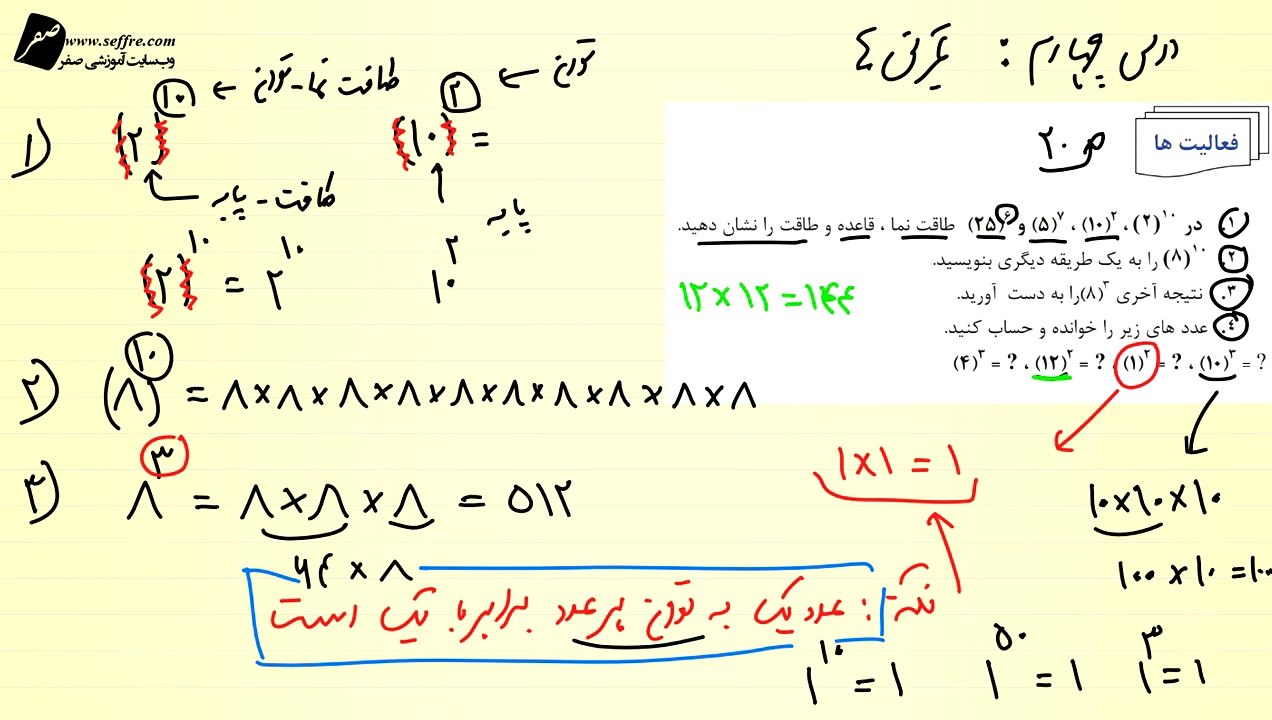 صفر
www.seffre.com
وب‌سایت آموزشی صفر
درس چهارم :
فعالیت ها
ص ۲۰
۱. در (۲)^۱۰، (۱۰)^۲، (۵)^۷ و (۲۵)^۶ طاقت نما ، قاعده و طاقت را نشان دهید.
۲. (۸)^۱۰ را به یک طریقه دیگری بنویسید.
۳. نتیجه آخری (۸)^۳ را به دست آورید.
۴. عدد های زیر را خوانده و حساب کنید.
(۴)^۳ = ? ، (۱۲)^۲ = ? ، (۱)^۲ = ? ، (۱۰)^۳ = ?
۱۲ × ۱۲ = ۱۴۴
۱) (۲)^۱۰ ← توان - طاقت نما
طاقت - پایه
(۱۰)^۲ = ← توان
پایه
(۲)^۱۰ = ۲^۱۰
۱۰^۲
۲) (۸)^۱۰ = ۸ × ۸ × ۸ × ۸ × ۸ × ۸ × ۸ × ۸ × ۸ × ۸
۳) ۸^۳ = ۸ × ۸ × ۸ = ۵۱۲
۶۴ × ۸
۱ × ۱ = ۱
۱۰ × ۱۰ × ۱۰
۱۰۰ × ۱۰ = ۱۰۰
نکته : عدد یک به توان هر عدد برابر با یک است
۱^۱۰ = ۱
۱^۵۰ = ۱
۱^۳ = ۱